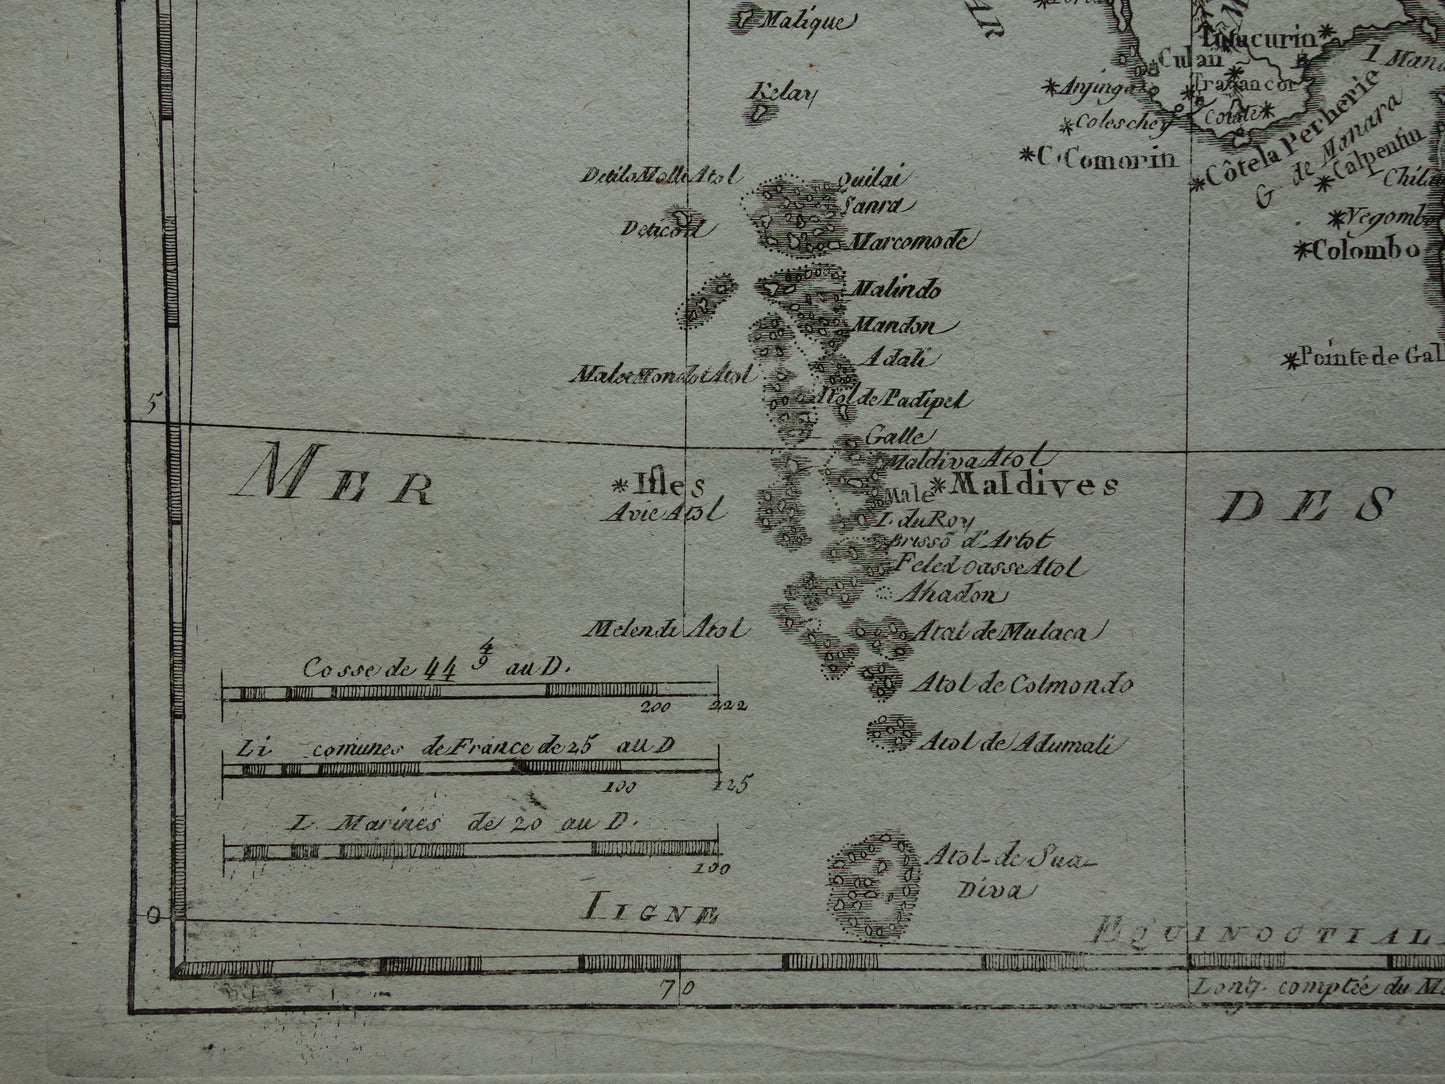 Malique
Kelay
AR
Tutucurin
Culan
Anjinga
Travancor
Coleschey
Coiate
C. Comorin
Côte la Perherie
G de Manara
I Mana
Calpentin
Chila
Negombo
Colombo
Pointe de Gall
Detilo Molle Atol
Deticord
Quilai
Sanra
Marcomode
Malindo
Mandon
Adali
Maloe Mondot Atol
Atol de Padipel
5
Galle
Maldiva Atol
MER
*Isles
Male
*Maldives
DES
Avie Atol
I. du Roy
Brissō d'Artot
Feled oasse Atol
Ahadon
Melendi Atol
Atal de Mulaca
Cosse de 44 4/9 au D.
200 222
Atol de Colmondo
Li comunes de France de 25 au D
100 125
Atol de Adumali
L. Marines de 20 au D.
100
Atol de Sua-
Diva
0
LIGNE
EQUINOCTIALE
70
Long. comptée du M